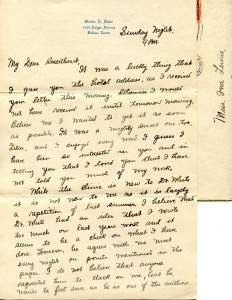 Dallas, Texas
Sunday Night,
9 P.M.
My Dear Sweetheart,
It was a lucky thing that
I gave you the hotel address, as I received
your letter this morning. Otherwise I would
not have received it until tomorrow morning.
Believe me I wanted to get it as soon
as possible. It was a mighty sweet one too,
Dear, and I enjoyed every word. I guess I
have been so interested in you and in
telling you that I love you that I have
not told you much of my work.
While the clinic is new to Dr. White
it is not new to me as it is largely
a repetition of last summer. I believe that
Dr. White had an idea that I wrote
too much on last year's work and it
seems to be a check on what I have
done. However, he agrees with me most
every night on points mentioned in the
paper. I do not believe that anyone
suggested him to check on me, but he
wants to feel sure as he is one of the authors.
Miss Ima Louise